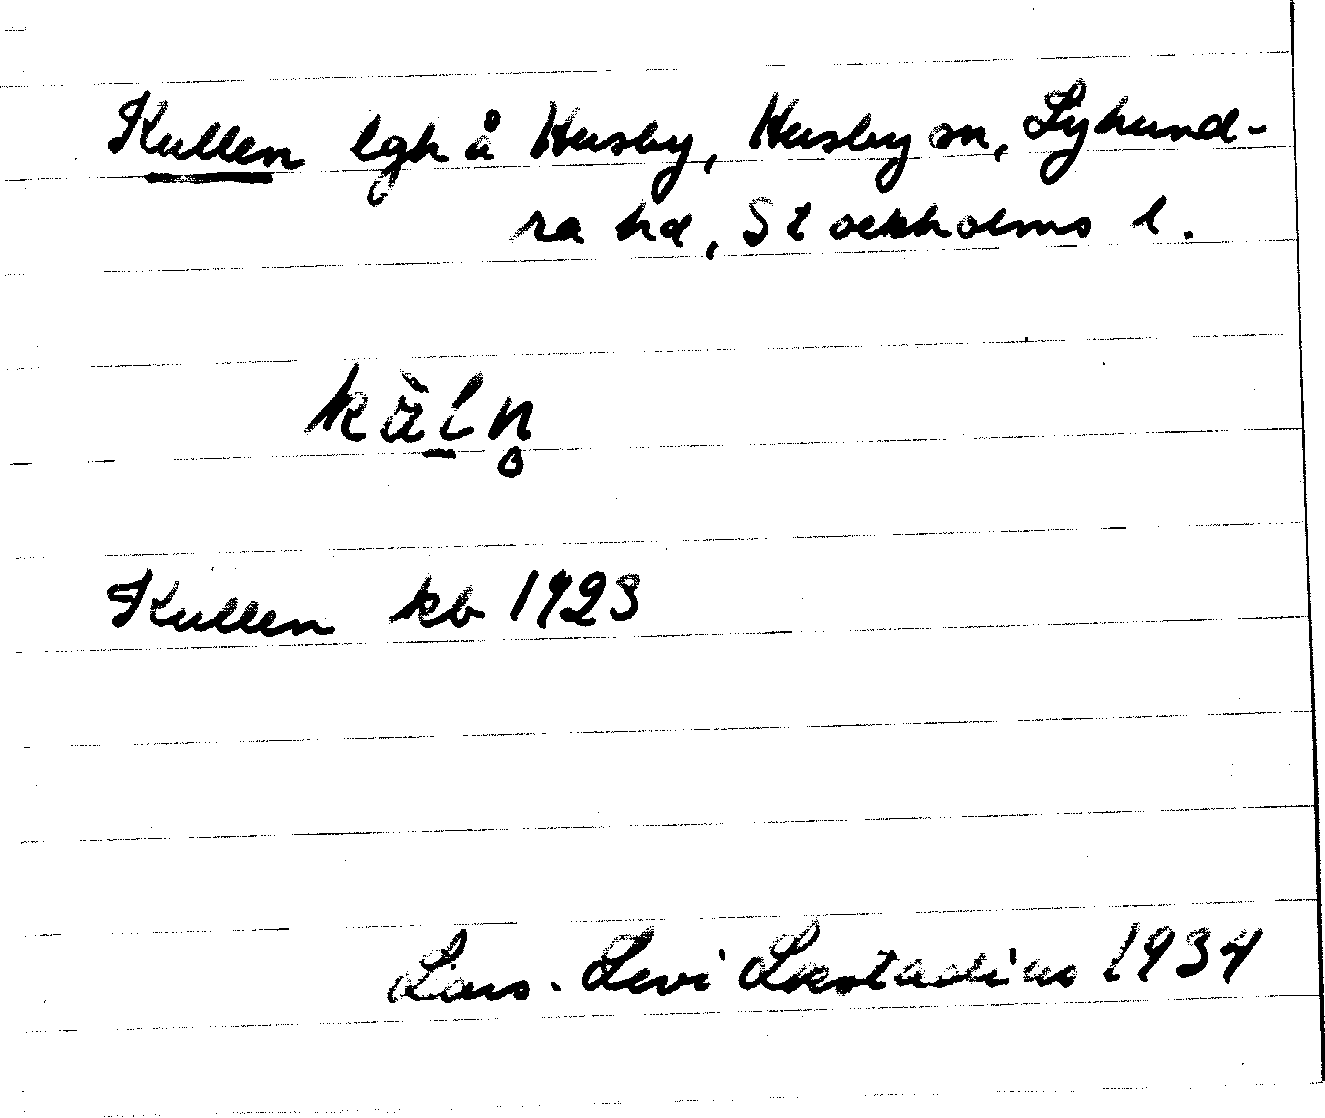 Kullen lgh å Husby, Husby sn, Lyhund-
ra hd, Stockholms l.
käln̥
Kullen kb 1923
Lars-Levi Læstadius 1934